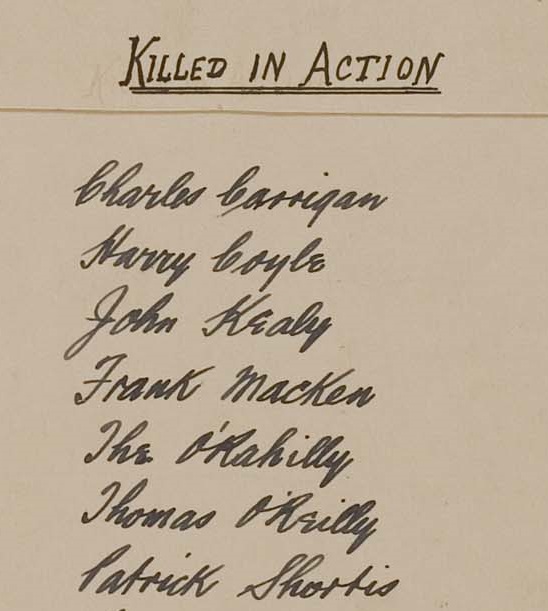 KILLED IN ACTION
Charles Carrigan
Harry Coyle
John Kealy
Frank Macken
The O'Rahilly
Thomas O'Reilly
Patrick Shortis